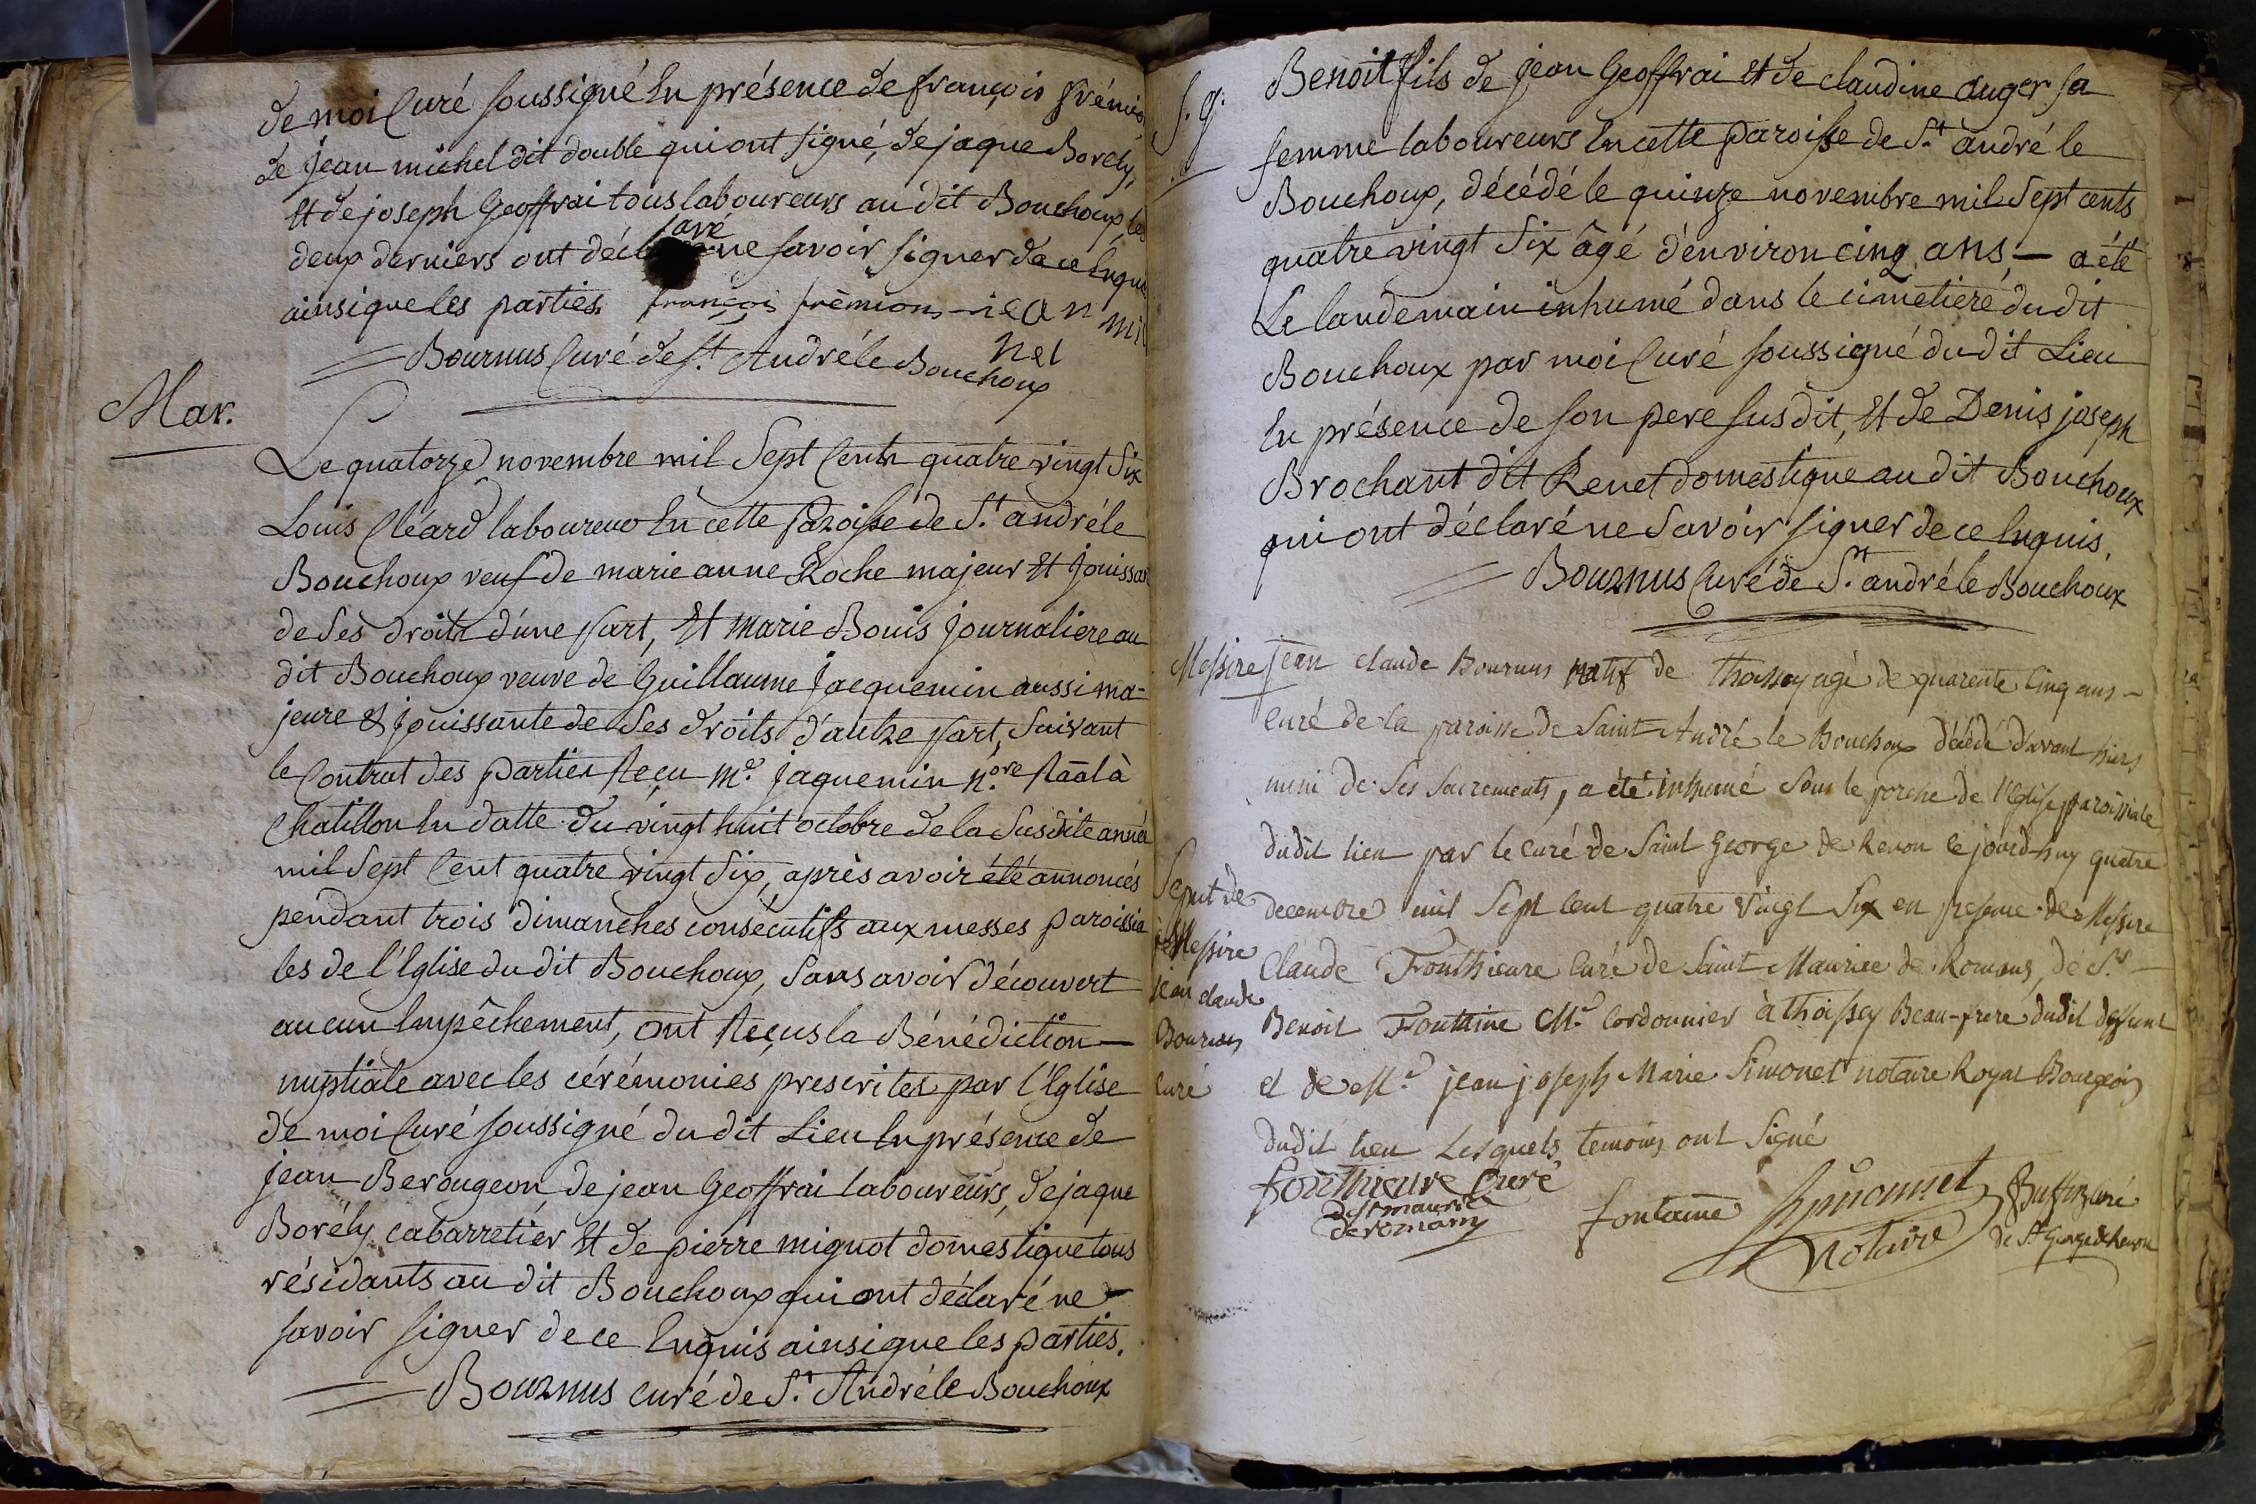 de moi Curé soussigné En présence de françois frémio
de jean michel dit double qui ont signé, de jaque Borely,
Et de joseph Geoffrai tous laboureurs au dit Bouchoux, les
deux derniers ont déclaré ne savoir signer de ce Enqui
ainsi que les parties. françois frèmion jean mi
hel
Bournus Curé de St. André le Bouchoux
Mar.
Le quatorze novembre mil Sept Cents quatre vingt Six
Louis Cléard laboureur En cette Paroisse de St. andré le
Bouchoux veuf de marie anne Roche majeur Et jouissan
de Ses droits d'une part, Et marie Bouis journaliere au
dit Bouchoux veuve de Guillaume Jacquemin aussi ma-
jeure & jouissante de Ses droits d'autre part, Suivant
le Contrat des parties Reçu Me. jaquemin N.ore Raal à
Chatillon En datte du vingt huit octobre de la Susdite année
mil Sept Cent quatre vingt Six, après avoir été annoncés
pendant trois dimanches consécutifs aux messes paroissia
les de l'Eglise du dit Bouchoux, Sans avoir découvert
aucun Empêchement, ont Reçus la Bénédiction
nuptiale avec les cérémonies prescrites par l'Eglise
de moi Curé soussigné du dit Lieu En présence de
jean Berougeon, de jean Geoffrai laboureurs, de jaque
Borély cabarretiér Et de pierre mignot domestique tous
résidants au dit Bouchoux qui ont déclaré ne
savoir signer de ce Enquis ainsi que les parties.
Bournus curé de St. André le Bouchoux
S. g.
Benoit fils de jean Geoffrai Et de claudine auger sa
femme laboureurs En cette Paroisse de St. andré le
Bouchoux, décédé le quinze novembre mil Sept cents
quatre vingt Six âgé d'environ cinq ans, a été
Le landemain inhumé dans le cimetiere du dit
Bouchoux par moi Curé soussigné du dit Lieu
En présence de son pere susdit, Et de Denis joseph
Brochant dit Renet domestique au dit Bouchoux
qui ont déclaré ne Savoir signer de ce Enquis.
Bournus Curé de St. andré le Bouchoux
Seput de
Messire
jean claude
Bournus
curé
Messire jean claude Bournus natif de Thoissey agé de quarente Cinq ans
curé de la paroisse de Saint André le Bouchoux décédé d'avant hiers
muni de Ses Sacrements, a été inhumé Sous le porche de l'Eglise paroissiale
dudit lieu par le curé de Saint George de Renon ce jourd-huy quatre
decembre mil Sept Cent quatre vingt Six en presence de Messire
Claude Fonthieure Curé de Saint Maurice de Romans, de Sr.
Benoit Fontaine Me. Cordonnier à thoissey Beau-frere dudit deffunt
et de Me. jean joseph Marie Simonet notaire Royal Bourgeois
dudit lieu Lesquels temoins ont Signé
fonthieure Curé
de st maurice
de romans
fontaine
Simonnet
Notaire
Buffin curé
de St George de Renon